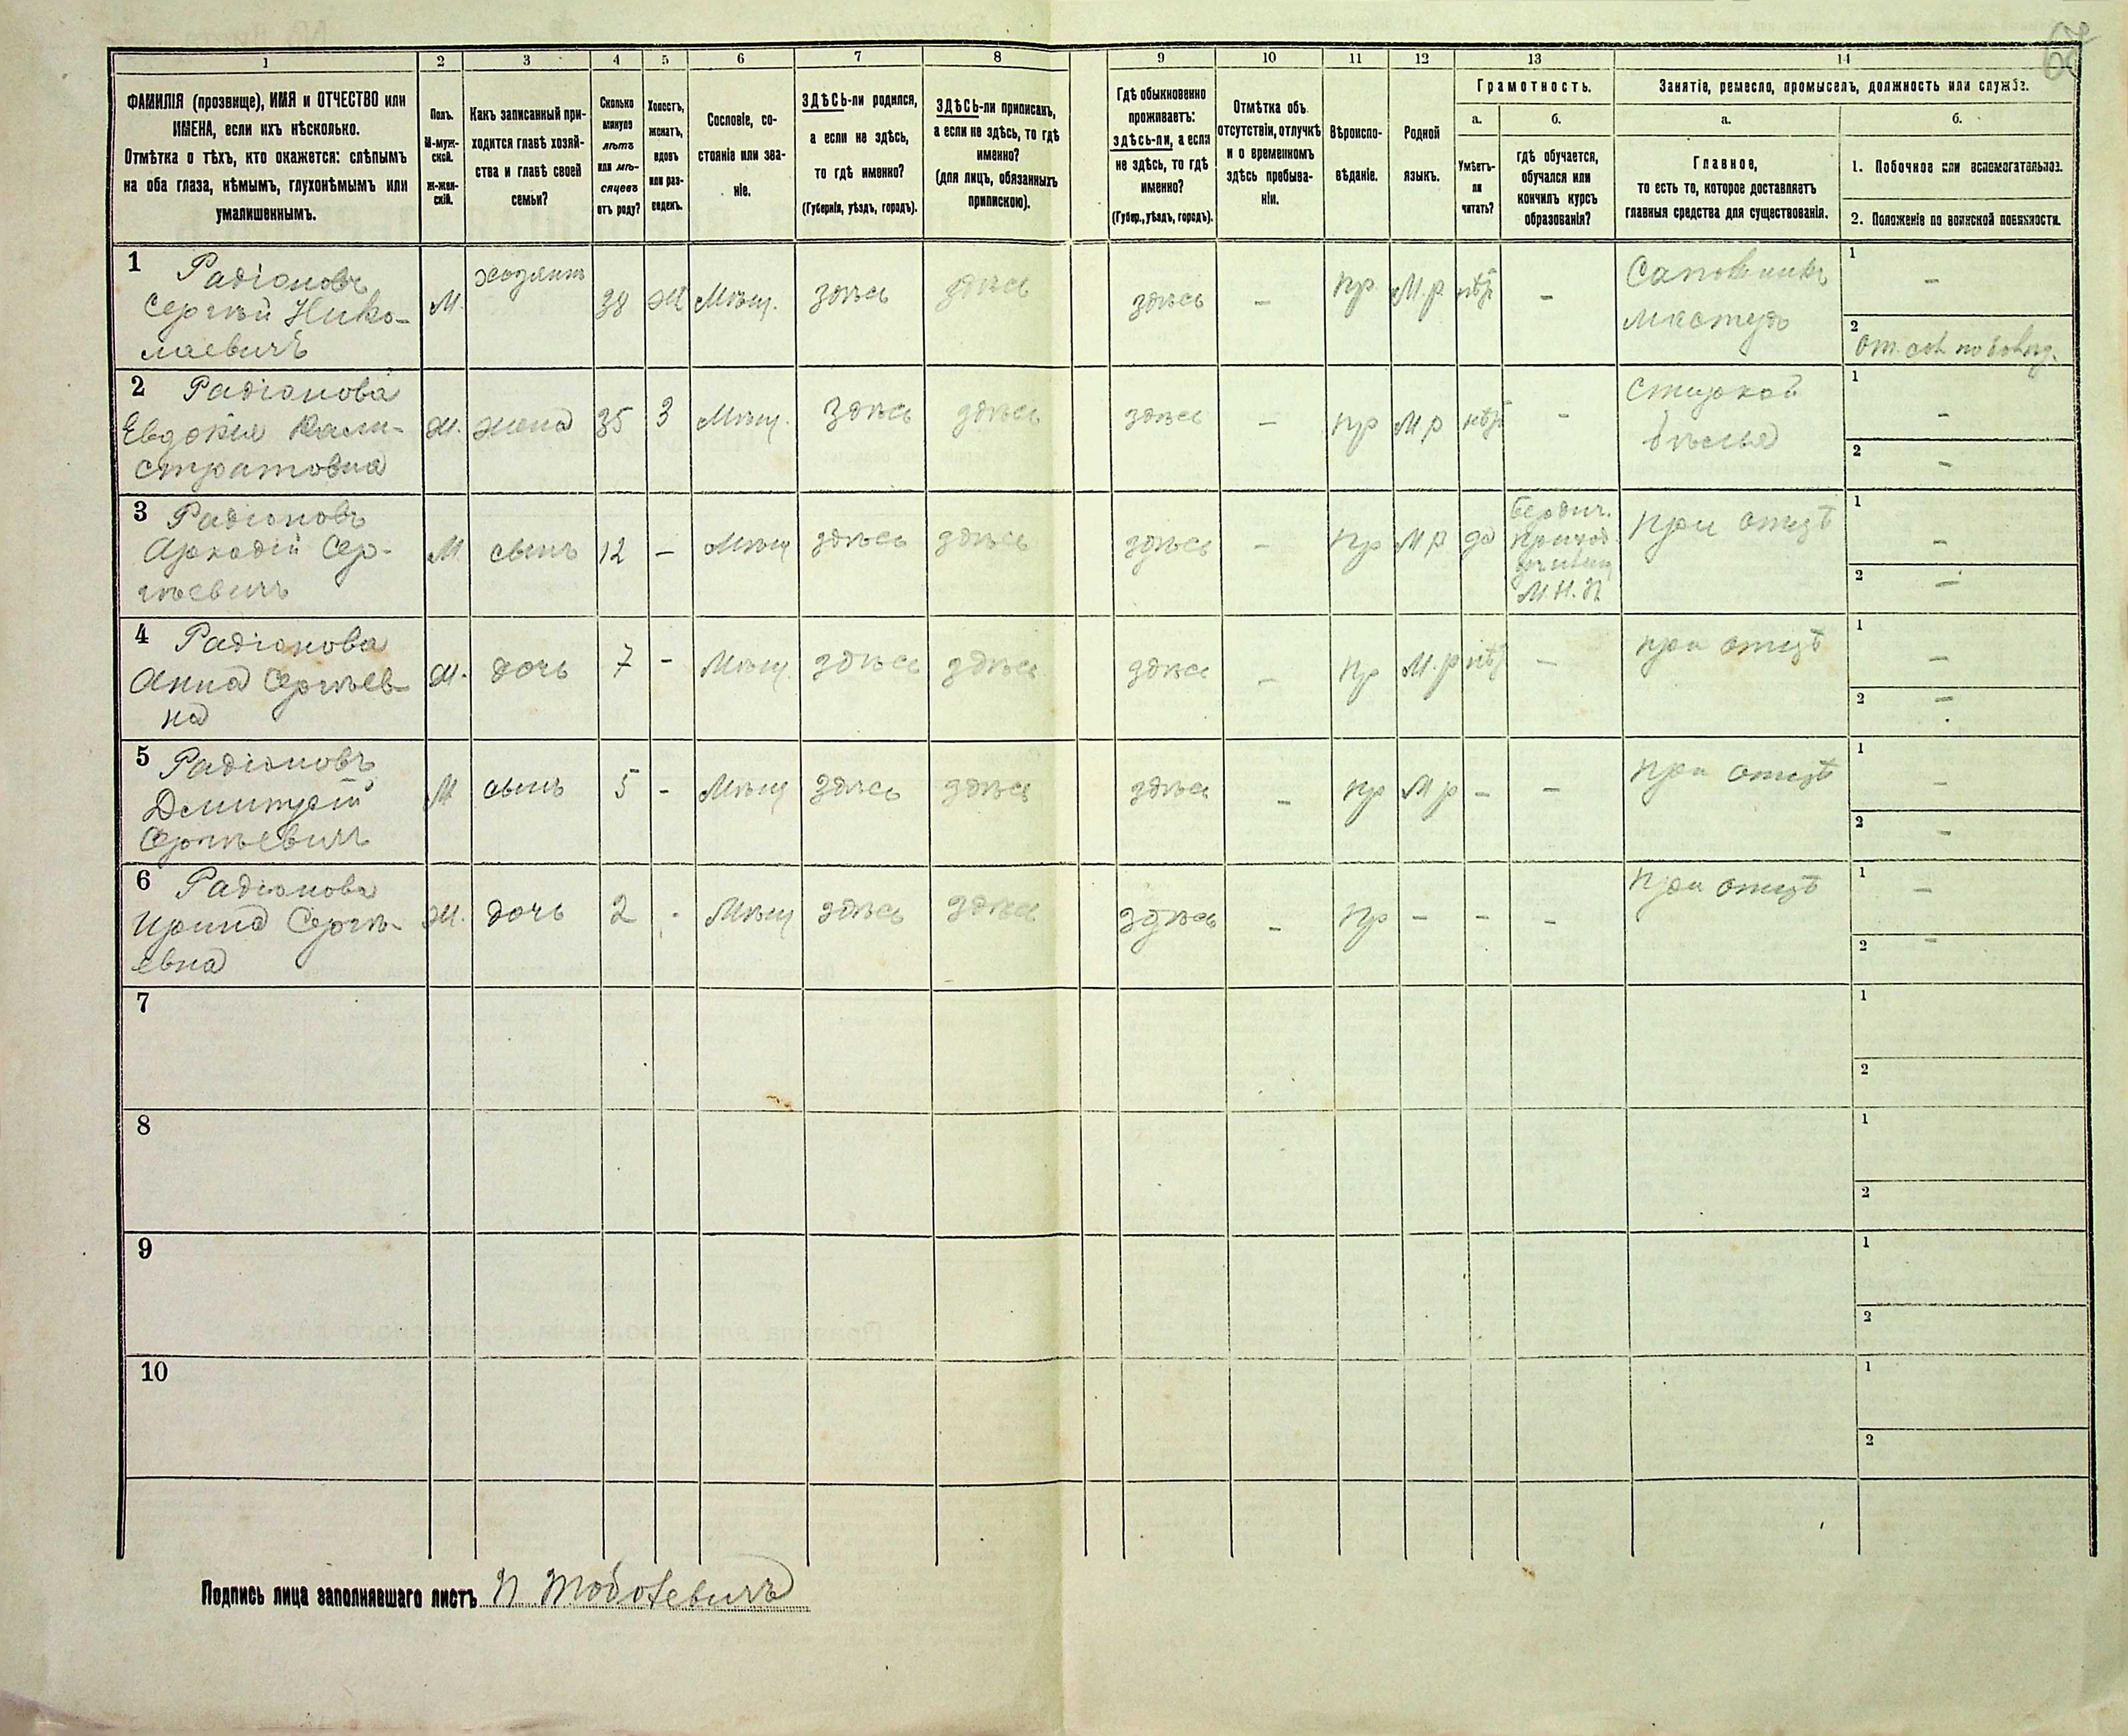 67
1 2 3 4 5 6 7 8 9 10 11 12 13 14
ФАМИЛІЯ (прозвище), ИМЯ и ОТЧЕСТВО или
ИМЕНА, если ихъ нѣсколько.
Отмѣтка о тѣхъ, кто окажется: слѣпымъ
на оба глаза, нѣмымъ, глухонѣмымъ или
умалишеннымъ.
Полъ.
М-муж-
ской.
ж-жен-
скій.
Какъ записанный при-
ходится главѣ хозяй-
ства и главѣ своей
семьи?
Сколько
минуло
лѣтъ
или мѣ-
сяцевъ
отъ роду?
Холостъ,
женатъ,
вдовъ
или раз-
веденъ.
Сословіе, со-
стояніе или зва-
ніе.
ЗДѢСЬ-ли родился,
а если не здѣсь,
то гдѣ именно?
(Губернія, уѣздъ, городъ).
ЗДѢСЬ-ли приписанъ,
а если не здѣсь, то гдѣ
именно?
(для лицъ, обязанныхъ
припискою).
Гдѣ обыкновенно
проживаетъ:
здѣсь-ли, а если
не здѣсь, то гдѣ
именно?
(Губер., уѣздъ, городъ).
Отмѣтка объ
отсутствіи, отлучкѣ
и о временномъ
здѣсь пребыва-
ніи.
Вѣроиспо-
вѣданіе.
Родной
языкъ.
Грамотность.
а.
Умѣетъ-
ли
читать?
б.
гдѣ обучается,
обучался или
кончилъ курсъ
образованія?
Занятіе, ремесло, промыселъ, должность или служба.
а.
Главное,
то есть то, которое доставляетъ
главныя средства для существованія.
б.
1. Побочное или вспомогательное.
2. Положеніе по воинской повинности.
1 Радіоновъ
Сергѣй Нико-
лаевичъ
М. хозяинъ 38 Ж Мѣщ. здѣсь здѣсь здѣсь — пр. М.р. нѣтъ —
Сапожникъ
мастеръ
1 —
2
2 Радіонова
Евдокія Кали-
стратовна
Ж. жена 35 З Мѣщ. здѣсь здѣсь здѣсь — пр М р нѣтъ -
Стиркой
бѣлья
1 —
2 —
3 Радіоновъ
Аркадій Сер-
гѣевичъ
М сынъ 12 — Мѣщ здѣсь здѣсь здѣсь — пр М р да
Бердич.
приход.
училищ
М.Н.П
при отцѣ
1 —
2 —
4 Радіонова
Анна Сергѣев-
на
Ж. дочь 7 - Мѣщ. здѣсь здѣсь здѣсь — пр М.р нѣт — при отцѣ
1 —
2 —
5 Радіоновъ
Дмитрій
Сергѣевичъ
М сынъ 5 - Мѣщ здѣсь здѣсь здѣсь — пр М р — — при отцѣ
1 —
2 —
6 Радіонова
Ирина Сергѣ-
евна
Ж. дочь 2 - Мѣщ здѣсь здѣсь здѣсь — пр — — — при отцѣ
1 —
2 —
7
1
2
8
1
2
9
1
2
10
1
2
Подпись лица заполнявшаго листъ П.